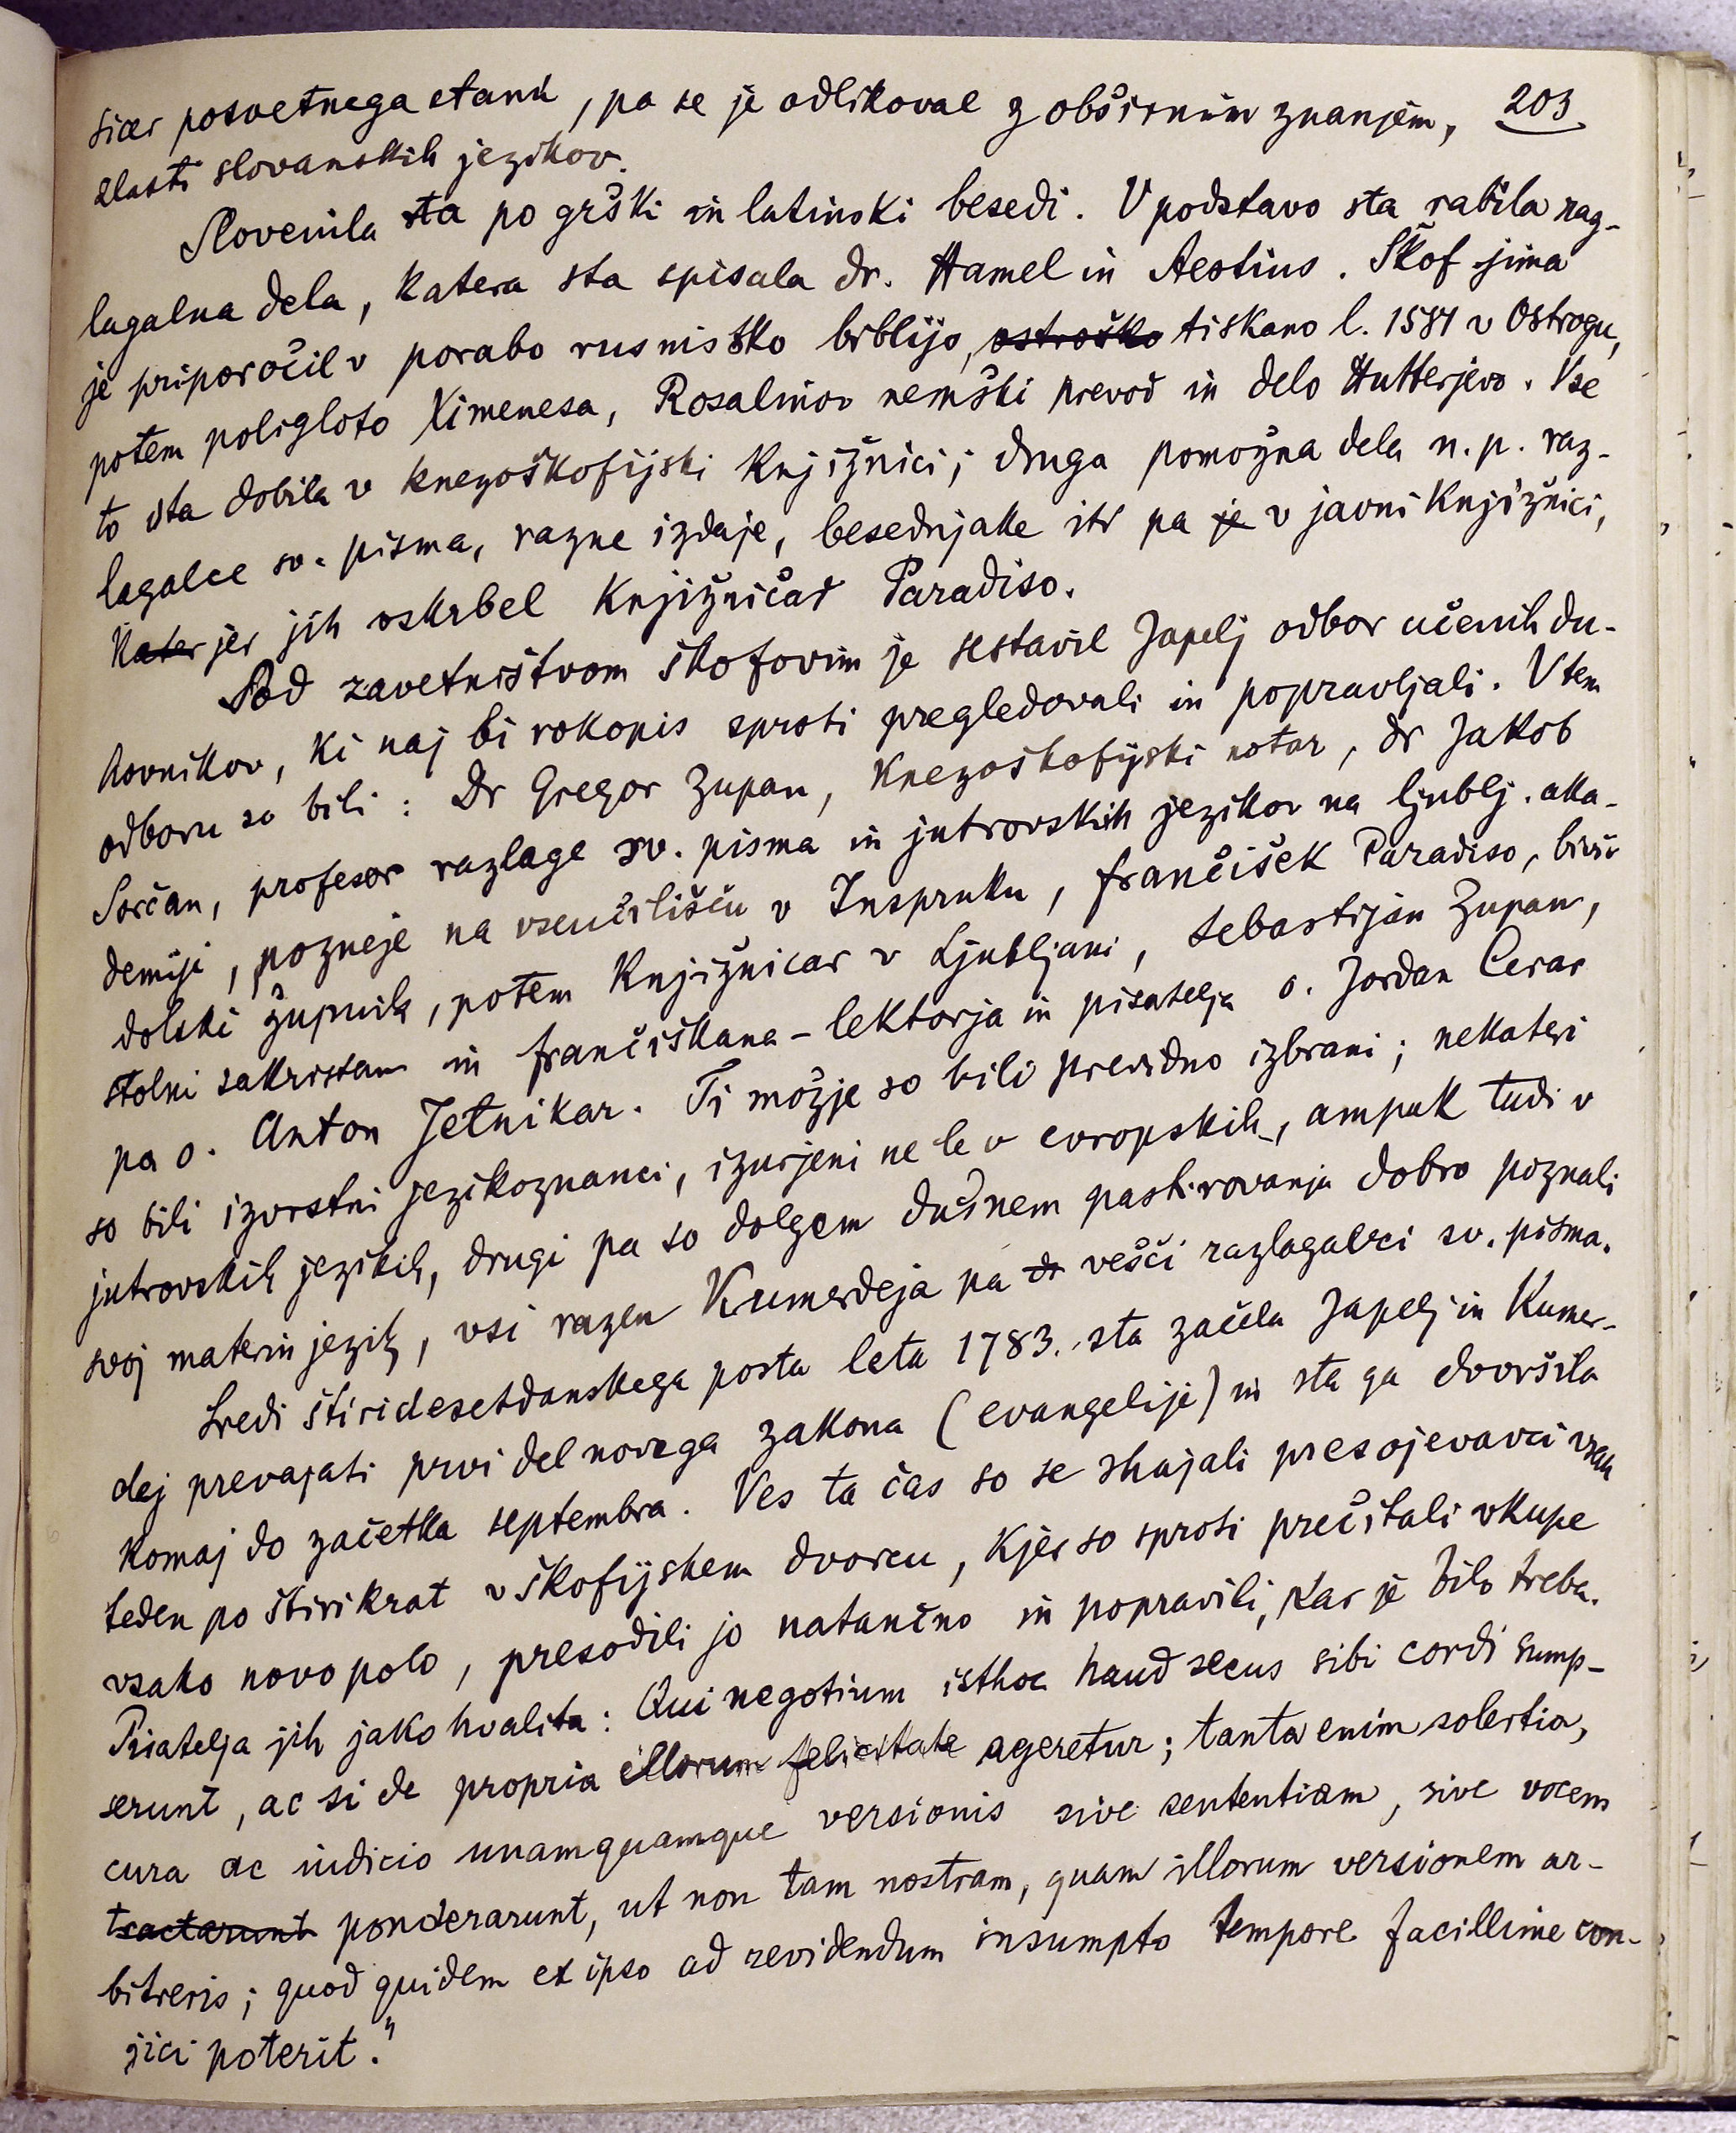 sicer posvetnega stanu, pa se je odlikoval z obširnim znanjem, 203
zlasti slovanskih jezikov.
Slovenila sta po grški in latinski besedi. V podstavo sta rabila raz-
lagalna dela, katera sta spisala dr. Hamel in Aestius. Škof jima
je priporočil v porabo rusniško biblijo, ostroško tiskano l. 1581 v Ostrogu,
potem poligloto Ximenesa, Rosalinov nemški prevod in delo Hutterjevo. Vse
to sta dobila v knezoškofijski knjižnici; druga pomožna dela n. p. raz-
lagalce sv. pisma, razne izdaje, besednjake itd pa je v javni knjižnici,
Kater jer jih oskrbel knjižničar Paradiso.
Pod zavetništvom škofovim je sestavil Japelj odbor učenih du-
hovnikov, ki naj bi rokopis sproti pregledovali in popravljali. V tem
odboru so bili: Dr Gregor Zupan, knezoškofijski notar, dr Jakob
Sorčan, profesor razlage sv. pisma in jutrovskih jezikov na ljublj. aka-
demiji, pozneje na vseučilišču v Inspruku, Frančišek Paradiso, bivši
dolski župnik, potem knjižnicar v Ljubljani, Sebastijan Zupan,
stolni zakristan in frančiškana-lektorja in pisatelja o. Jordan Cerar
pa o. Anton Jetnikar. Ti možje so bili previdno izbrani; nekateri
so bili izvrstni jezikoznanci, izurjeni ne le v evropskih, ampak tudi v
jutrovskih jezikih, drugi pa so dolgem dušnem pastirovanju dobro poznali
svoj materin jezik, vsi razen Kumerdeja pa dr vešči razlagalci sv. pisma.
Sredi štiridesetdanskega posta leta 1783. sta začela Japelj in Kumer-
dej prevajati prvi del novega zakona (evangelije) in sta ga dovršila
komaj do začetka septembra. Ves ta čas so se shajali presojevavci vsak
teden po štirikrat v škofijskem dvorcu, kjer so sproti prečitali vkupe
vsako novo polo, presodili jo natančno in popravili, kar je bilo treba.
Pisatelja jih jako hvalita: Qui negotium isthoc haud secus sibi cordi sump-
serunt, ac si de propria illorum felicitate ageretur; tanta enim solertia,
cura ac iudicio unamquamque versionis sive sententiam, sive vocem
tractarunt ponderarunt, ut non tam nostram, quam illorum versionem ar-
bitreris; quod quidem ex ipso ad revidendum insumpto tempore facillime con-
jici poterit."